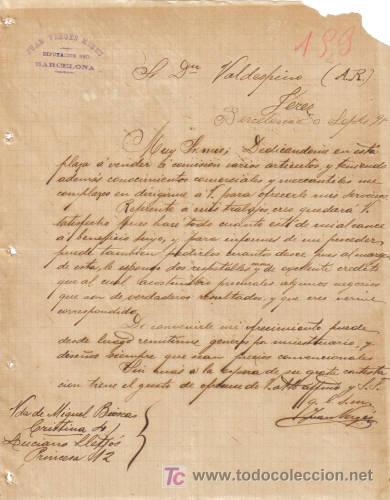 JUAN VERGÉS RIBOT
DIPUTACIÓN
BARCELONA
199
S Dn Valdespino (A.R.)
Jérez
Barcelona Septe
Muy Sr mio; Dedicandome en esta
plaza á vender á comisión varios articulos, y teniendo
además conocimientos comerciales y mercantiles me
complazco en dirigirme á V. para ofrecerle mis servicios
Referente a mis trabajos creo quedará V.
satisfecho pues haré todo cuanto esté de mi alcance
á beneficio suyo, y para informes de mi proceder
puede tambien pedirlos cuantos desee que al margen
de esta, le expongo dos respetables y de excelente credito
que al cual acostumbro
que son de verdaderos resultados, y que creo verme
correspondido.
De convenirle mi ofrecimiento puede
desde luego remitirme generos ó muestrario, y
diseños siempre que sean precios convencionales
Sin mas á la espera de su grata contesta
cion tiene el gusto de ofrecerse de V. atto affmo y S.S.
q. b. s. m.
Juan Vergés
Vda de Miguel Boscas
Cristina 4
Luciano
Princesa 12
TC todocoleccion.net